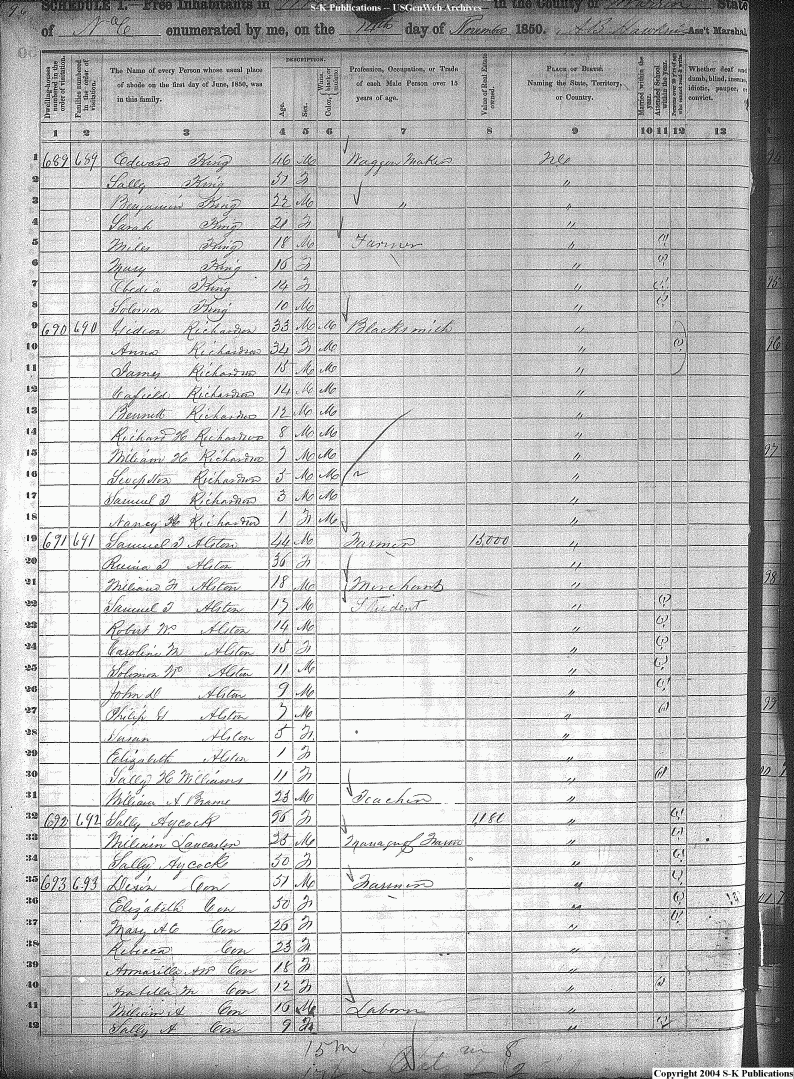 S-K Publications -- USGenWeb Archives
SCHEDULE I.—Free Inhabitants in in the County of Warren State
of N C enumerated by me, on the 14th day of November 1850. A B Hawkins Ass't Marshal
Dwelling-houses numbered in the order of visitation.
Families numbered in the order of visitation.
The Name of every Person whose usual place of abode on the first day of June, 1850, was in this family.
DESCRIPTION.
Age.
Sex.
Color, White, black, or mulatto.
Profession, Occupation, or Trade of each Male Person over 15 years of age.
Value of Real Estate owned.
PLACE OF BIRTH
Naming the State, Territory, or Country.
Married within the year.
Attended School within the year.
Whether deaf and dumb, blind, insane, idiotic, pauper, or convict.
1 2 3 4 5 6 7 8 9 10 11 12 13
1 689 689 Edward King 46 M Waggon Maker
2 Sally King 51 F "
3 Benjamin King 22 M " "
4 Sarah King 21 F "
5 Miles King 18 M Farmer "
6 Mary King 16 F "
7 Obedia King 14 F "
8 Solomon King 10 M "
9 690 690 Gideon Richardson 33 M M Blacksmith "
10 Anna Richardson 34 F M "
11 James Richardson 15 M M "
12 Richardson 14 M M "
13 Bennett Richardson 12 M M "
14 Richard H Richardson 8 M M "
15 William H Richardson 7 M M "
16 Richardson 5 M M "
17 Samuel T Richardson 3 M M "
18 Nancy H Richardson 1 F M "
19 691 691 Samuel T Alston 44 M Farmer 15,000 "
20 Alston 36 F "
21 William F Alston 18 M Merchant "
22 Samuel T Alston 17 M Student "
23 Robert W Alston 14 M "
24 Caroline M Alston 15 F "
25 Solomon W Alston 11 M "
26 John D Alston 9 M "
27 Philip G Alston 7 M "
28 Susan Alston 5 F "
29 Elizabeth Alston 1 F "
30 Sally H Williams 11 F "
31 William A Brame 23 M Teacher "
32 692 692 Sally Aycock 56 F "
33 William Lancaster 25 M Manager of Farm "
34 Sally Aycock 50 F "
35 693 693 51 M Farmer "
36 Elizabeth 50 F "
37 Mary A C 26 F "
38 Rebecca 23 F "
39 18 F "
40 Arabella M 12 F "
41 William A 16 M Laborer "
42 Sally A 9 F "
15 M
Copyright 2004 S-K Publications